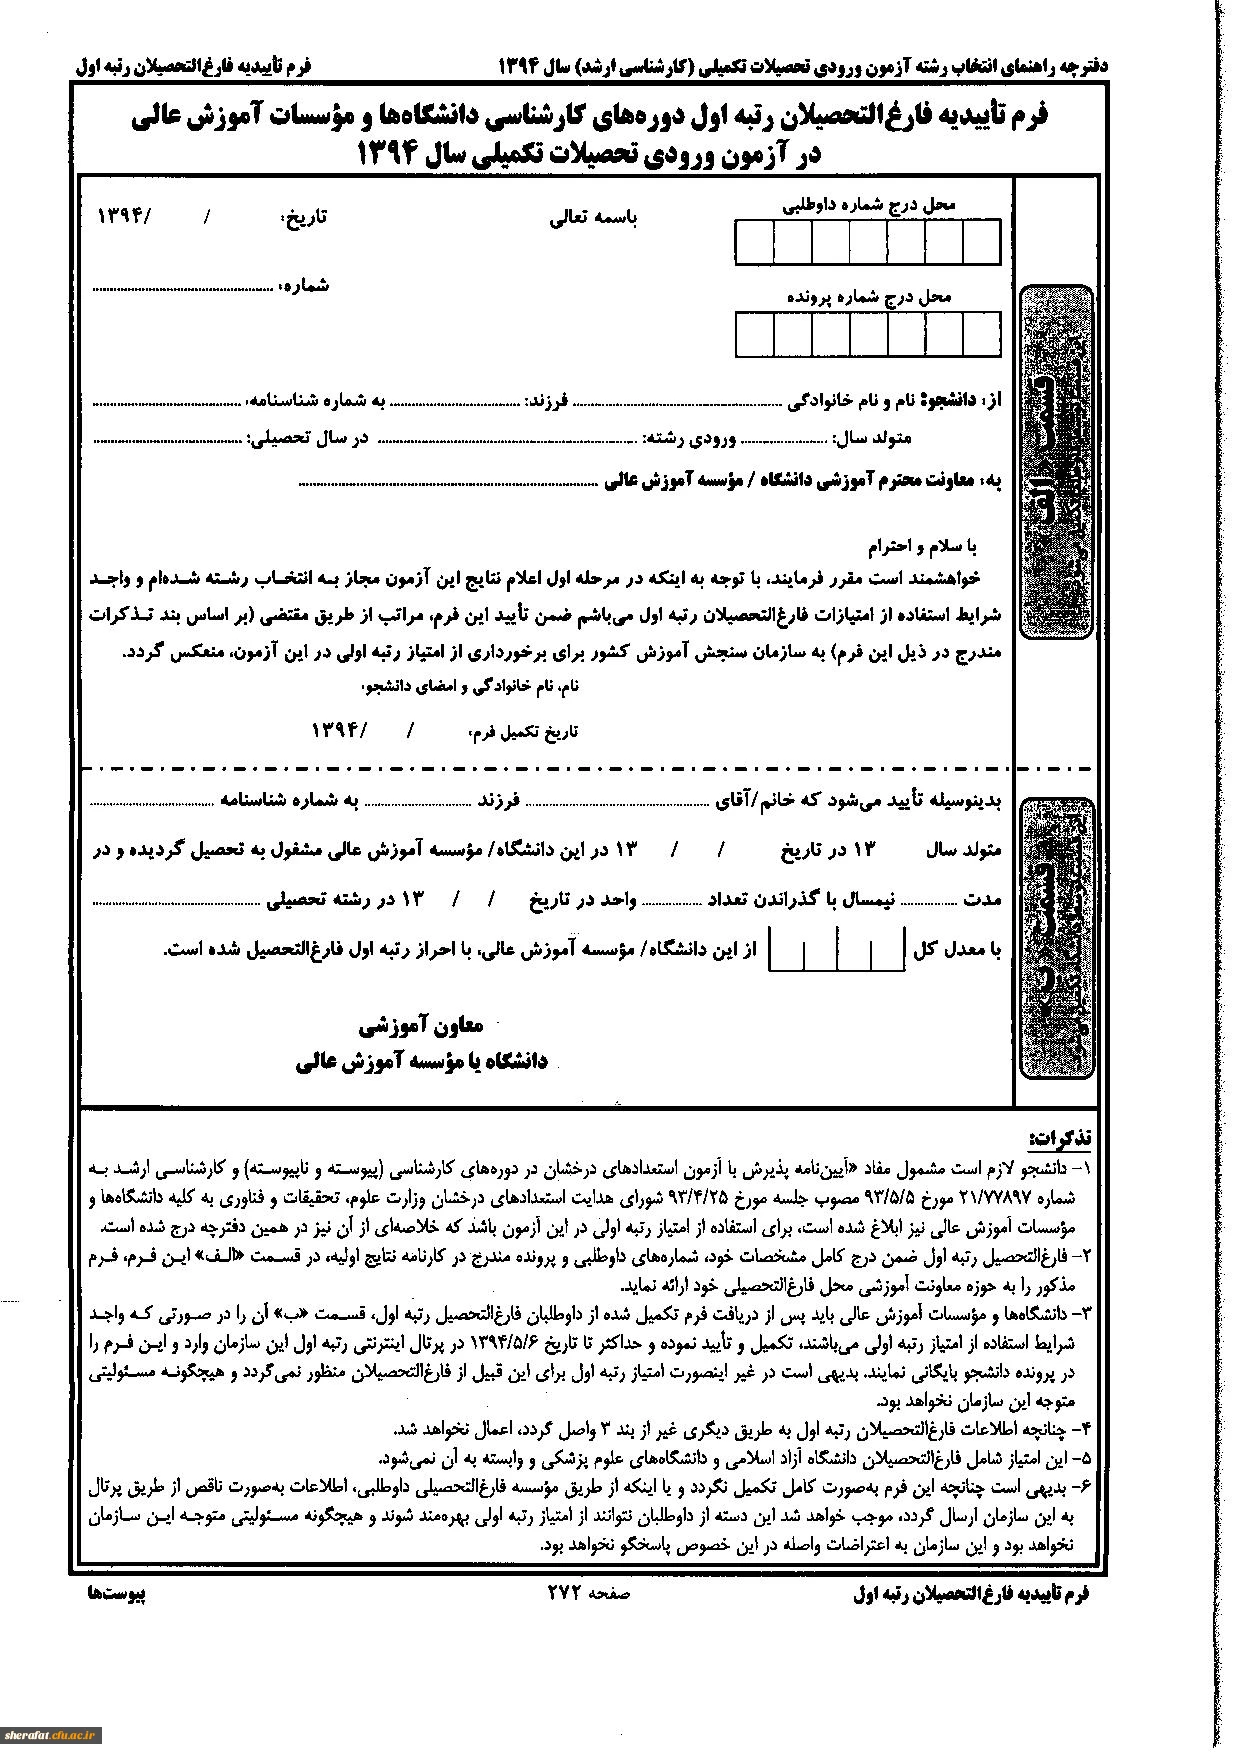 دفترچه راهنمای انتخاب رشته آزمون ورودی تحصیلات تکمیلی (کارشناسی ارشد) سال ۱۳۹۴
فرم تأییدیه فارغ‌التحصیلان رتبه اول
فرم تأییدیه فارغ‌التحصیلان رتبه اول دوره‌های کارشناسی دانشگاه‌ها و مؤسسات آموزش عالی
در آزمون ورودی تحصیلات تکمیلی سال ۱۳۹۴
محل درج شماره داوطلبی
باسمه تعالی
تاریخ: / /۱۳۹۴
شماره: ........................
محل درج شماره پرونده
قسمت «الف»
از: دانشجو: نام و نام خانوادگی ........................ فرزند: ........................ به شماره شناسنامه: ........................
متولد سال: ........................ ورودی رشته: ........................ در سال تحصیلی: ........................
به: معاونت محترم آموزشی دانشگاه / مؤسسه آموزش عالی ........................
با سلام و احترام
خواهشمند است مقرر فرمایند، با توجه به اینکه در مرحله اول اعلام نتایج این آزمون مجاز به انتخاب رشته شده‌ام و واجد
شرایط استفاده از امتیازات فارغ‌التحصیلان رتبه اول می‌باشم ضمن تأیید این فرم، مراتب از طریق مقتضی (بر اساس بند تذکرات
مندرج در ذیل این فرم) به سازمان سنجش آموزش کشور برای برخورداری از امتیاز رتبه اولی در این آزمون، منعکس گردد.
نام، نام خانوادگی و امضای دانشجو:
تاریخ تکمیل فرم: / /۱۳۹۴
قسمت «ب»
بدینوسیله تأیید می‌شود که خانم/آقای ........................ فرزند ........................ به شماره شناسنامه ........................
متولد سال ۱۳ در تاریخ / / ۱۳ در این دانشگاه/ مؤسسه آموزش عالی مشغول به تحصیل گردیده و در
مدت ............ نیمسال با گذراندن تعداد ............ واحد در تاریخ / / ۱۳ در رشته تحصیلی ........................
با معدل کل از این دانشگاه/ مؤسسه آموزش عالی، با احراز رتبه اول فارغ‌التحصیل شده است.
معاون آموزشی
دانشگاه یا مؤسسه آموزش عالی
تذکرات:
۱- دانشجو لازم است مشمول مفاد «آیین‌نامه پذیرش با آزمون استعدادهای درخشان در دوره‌های کارشناسی (پیوسته و ناپیوسته) و کارشناسی ارشد به
شماره ۲۱/۷۷۸۹۷ مورخ ۹۳/۵/۵ مصوب جلسه مورخ ۹۳/۴/۲۵ شورای هدایت استعدادهای درخشان وزارت علوم، تحقیقات و فناوری به کلیه دانشگاه‌ها و
مؤسسات آموزش عالی نیز ابلاغ شده است، برای استفاده از امتیاز رتبه اولی در این آزمون باشد که خلاصه‌ای از آن نیز در همین دفترچه درج شده است.
۲- فارغ‌التحصیل رتبه اول ضمن درج کامل مشخصات خود، شماره‌های داوطلبی و پرونده مندرج در کارنامه نتایج اولیه، در قسمت «الف» این فرم، فرم
مذکور را به حوزه معاونت آموزشی محل فارغ‌التحصیلی خود ارائه نماید.
۳- دانشگاه‌ها و مؤسسات آموزش عالی باید پس از دریافت فرم تکمیل شده از داوطلبان فارغ‌التحصیل رتبه اول، قسمت «ب» آن را در صورتی که واجد
شرایط استفاده از امتیاز رتبه اولی می‌باشند، تکمیل و تأیید نموده و حداکثر تا تاریخ ۱۳۹۴/۵/۶ در پرتال اینترنتی رتبه اول این سازمان وارد و این فرم را
در پرونده دانشجو بایگانی نمایند. بدیهی است در غیر اینصورت امتیاز رتبه اول برای این قبیل از فارغ‌التحصیلان منظور نمی‌گردد و هیچگونه مسئولیتی
متوجه این سازمان نخواهد بود.
۴- چنانچه اطلاعات فارغ‌التحصیلان رتبه اول به طریق دیگری غیر از بند ۳ واصل گردد، اعمال نخواهد شد.
۵- این امتیاز شامل فارغ‌التحصیلان دانشگاه آزاد اسلامی و دانشگاه‌های علوم پزشکی و وابسته به آن نمی‌شود.
۶- بدیهی است چنانچه این فرم به‌صورت کامل تکمیل نگردد و یا اینکه از طریق مؤسسه فارغ‌التحصیلی داوطلبی، اطلاعات به‌صورت ناقص از طریق پرتال
به این سازمان ارسال گردد، موجب خواهد شد این دسته از داوطلبان نتوانند از امتیاز رتبه اولی بهره‌مند شوند و هیچگونه مسئولیتی متوجه این سازمان
نخواهد بود و این سازمان به اعتراضات واصله در این خصوص پاسخگو نخواهد بود.
فرم تأییدیه فارغ‌التحصیلان رتبه اول
صفحه ۲۷۲
پیوست‌ها
sherafat.cfu.ac.ir